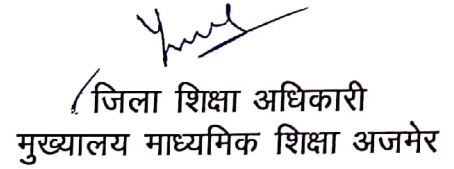 जिला शिक्षा अधिकारी
मुख्यालय माध्यमिक शिक्षा अजमेर